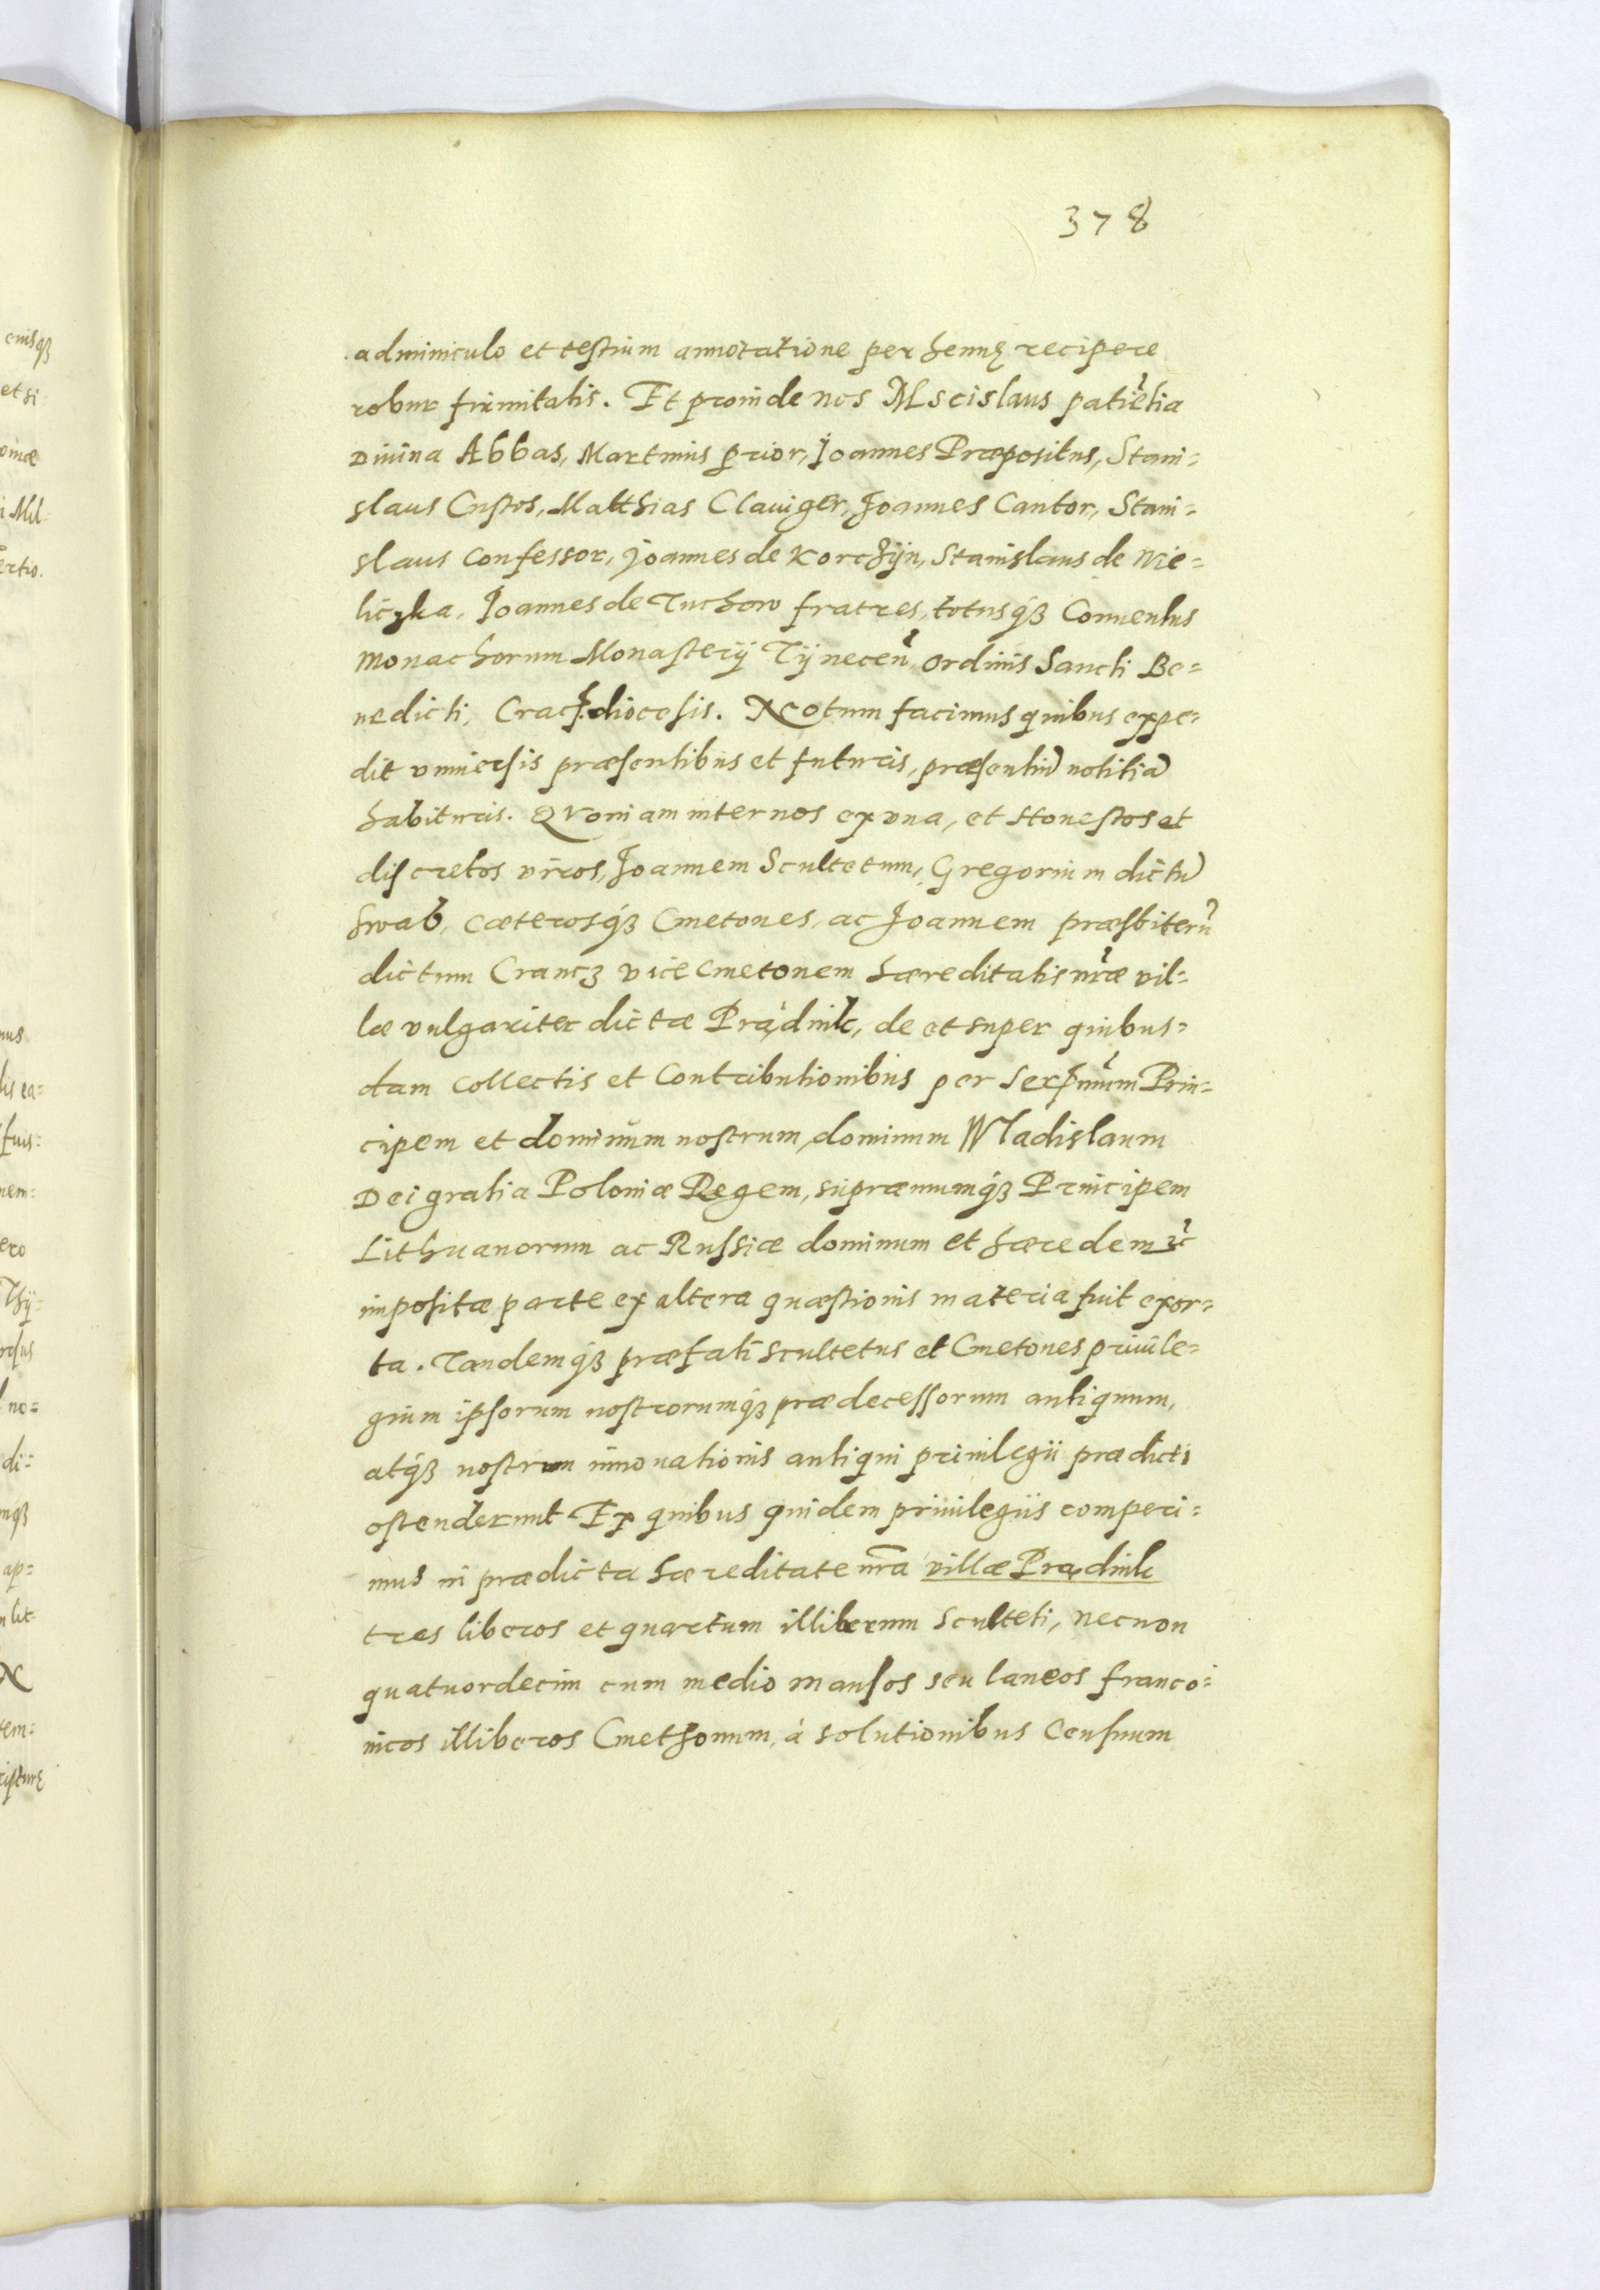 378
adminiculo et testium annotatione perhennę recipere
robur firmitatis. Et proinde nos Mscislaus patiẽtia
Diuina Abbas, Martinus prior, Joannes Præpositus, Stani=
slaus Custos, Matthias Clauiger, Joannes Cantor, Stani=
slaus Confessor, Joannes de Korczÿn, Stanislaus de Wie=
liczka, Joannes de Tuchow fratres, totusq́ꝫ Conuentus
Monachorum Monasterij Tÿneceñ Ordinis Sancti Be=
nedicti, Crac: diocesis. Notum facimus quibus expe=
dit vniuersis præsentibus et futuris, præsentiũ notitiã
habituris. Quoniam inter nos ex vna, et Honestos et
discretos viros, Joannem Scultetum, Gregorium dictũ
Swab, cæterosq́ꝫ Cmetones, ac Joannem præsbiterũ
dictum Crancz vice Cmetonem hæreditatis nr̃æ vil=
læ vulgariter dictæ Prądnik, de et super quibus=
dam collectis et Contributionibus per Ser: Prin=
cipem et dominum nostrum, dominum Wladislaum
Dei gratia Poloniæ Regem, supræmumq́ꝫ Principem
Lithuanorum ac Russiæ dominum et hæredem ꝛc̃
impositæ parte ex altera quæstionis materia fuit exor=
ta. Tandemq́ꝫ præfati scultetus et Cmetones priuile=
gium ipsorum nostrorumq́ꝫ prædecessorum antiquum,
atq́ꝫ nostrum innouationis antiqui priuilegii prædicti
ostenderunt Ex quibus quidem priuilegiis comperi=
mus in prædicta hæreditate nr̃a villæ Prądnik
tres liberos et quartum illiberum Sculteti, necnon
quatuordecim cum medio mansos seu laneos franco=
nicos illiberos Cmethonum, à solutionibus Censuum